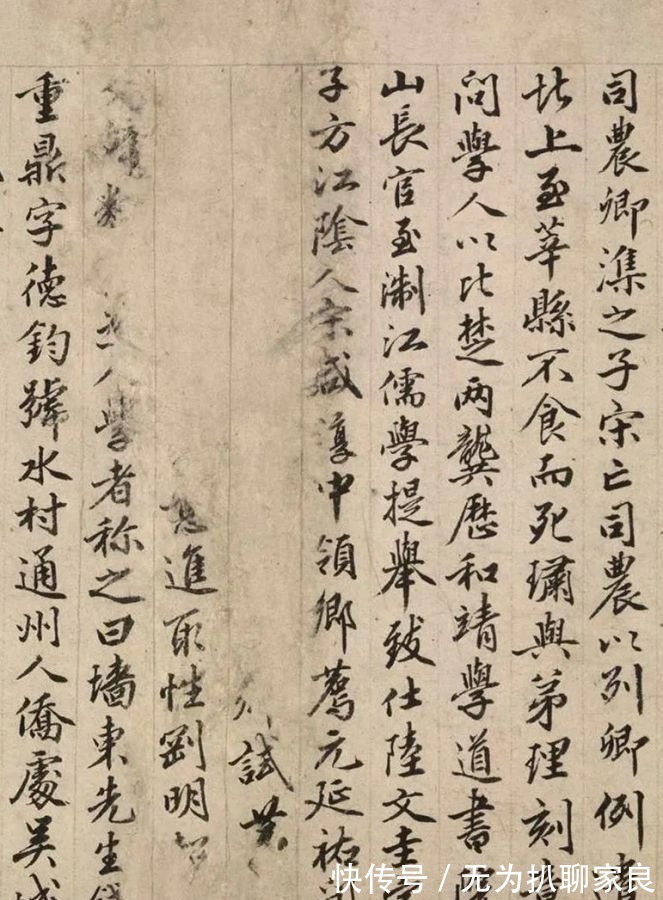 司農卿潗之子宋亡司農以列卿例遣
北上至莘縣不食而死璛與弟理刻意
問學人以比楚两龔歷和靖學道書院
山長官至淛江儒學提舉致仕陸文圭字
子方江陰人宋咸淳中領鄉薦元延祐
試
進取性剛明
人學者称之曰墻東先生錢
重鼎字德鈞號水村通州人僑處吴城
快传号/无为扒聊家良